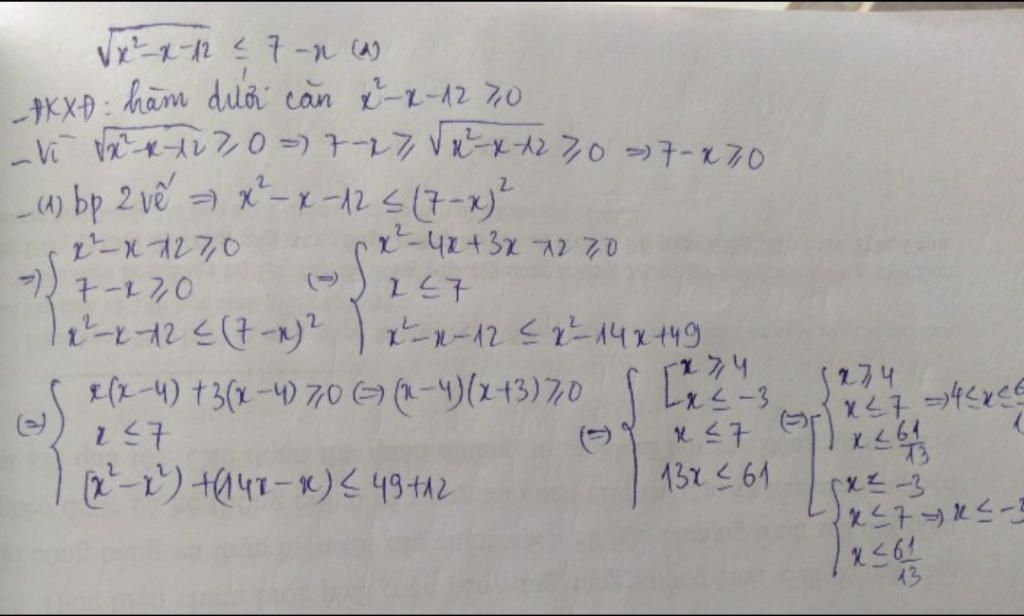 √(x²-x-12) ≤ 7-x (1)
- ĐKXĐ: hàm dưới căn x²-x-12 ≥ 0
- Vì √(x²-x-12) ≥ 0 => 7-x ≥ √(x²-x-12) ≥ 0 => 7-x ≥ 0
- (1) bp 2 vế => x²-x-12 ≤ (7-x)²
=> { x²-x-12 ≥ 0 (=) { x²-4x+3x-12 ≥ 0
7-x ≥ 0 x ≤ 7
x²-x-12 ≤ (7-x)² x²-x-12 ≤ x²-14x+49
(=) { x(x-4)+3(x-4) ≥ 0 (=) (x-4)(x+3) ≥ 0
x ≤ 7
(x²-x²)+(14x-x) ≤ 49+12
(=) { [ x ≥ 4
x ≤ -3
x ≤ 7
13x ≤ 61
(=) [ { x ≥ 4
x ≤ 7 => 4 ≤ x ≤
x ≤ 61/13
{ x ≤ -3
x ≤ 7 => x ≤ -3
x ≤ 61/13